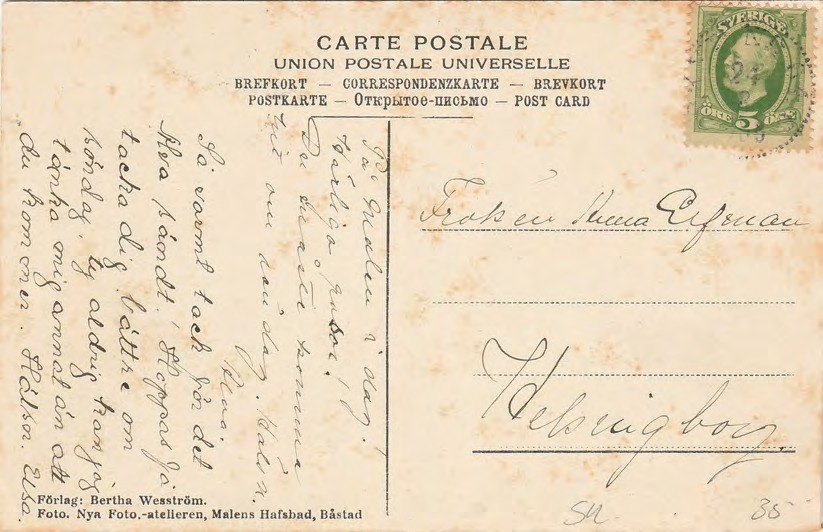 CARTE POSTALE
UNION POSTALE UNIVERSELLE
BREFKORT — CORRESPONDENZKARTE — BREVKORT
POSTKARTE — Открытое-письмо — POST CARD
SVERIGE
ÖRE 5 ÖRE
24
På Malen i dag.
Härliga gubbar!
Du måste komma
hit om söndag.
Så varmt tack för det
Alva sändt! Hoppas få
tacka dig bättre om
söndag, ty aldrig kan jag
tänka mig annat än att
du kommer. Hälsn. Elsa.
Fröken Anna
Helsingborg.
Förlag: Bertha Wesström.
Foto. Nya Foto.-atelieren, Malens Hafsbad, Båstad
35